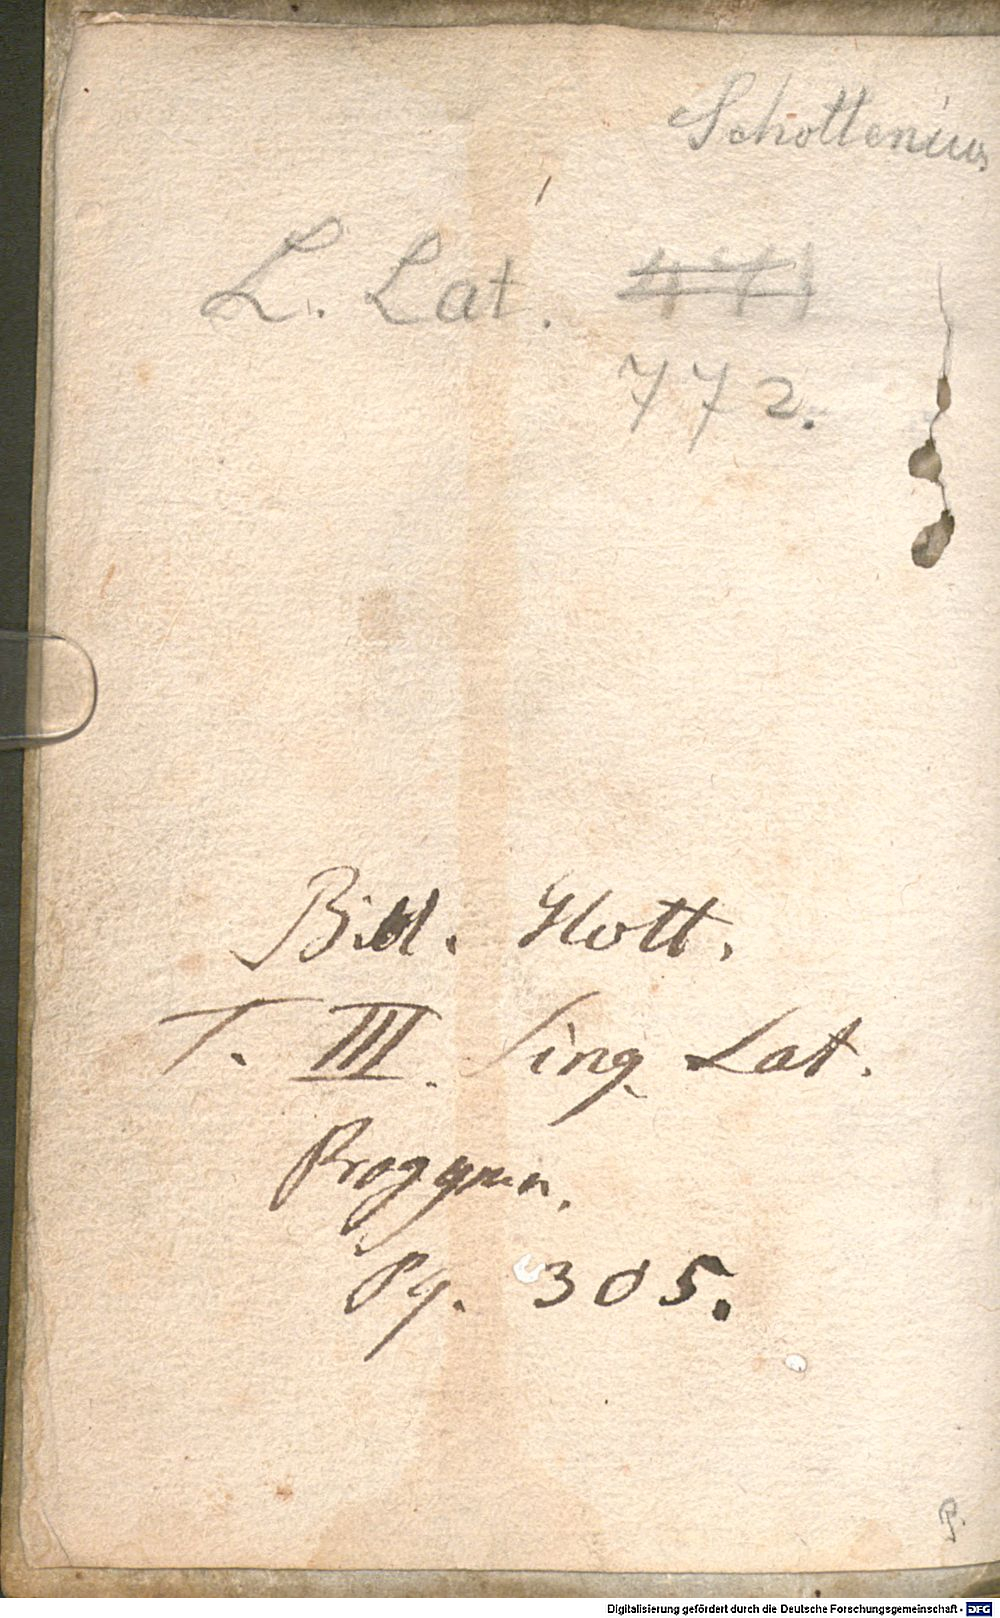 Schottenius
L. Lat. 471
772.
Bibl. Glott.
T. III. Ling. Lat.
Progymn.
Pg. 305.
P.
Digitalisierung gefördert durch die Deutsche Forschungsgemeinschaft - DFG